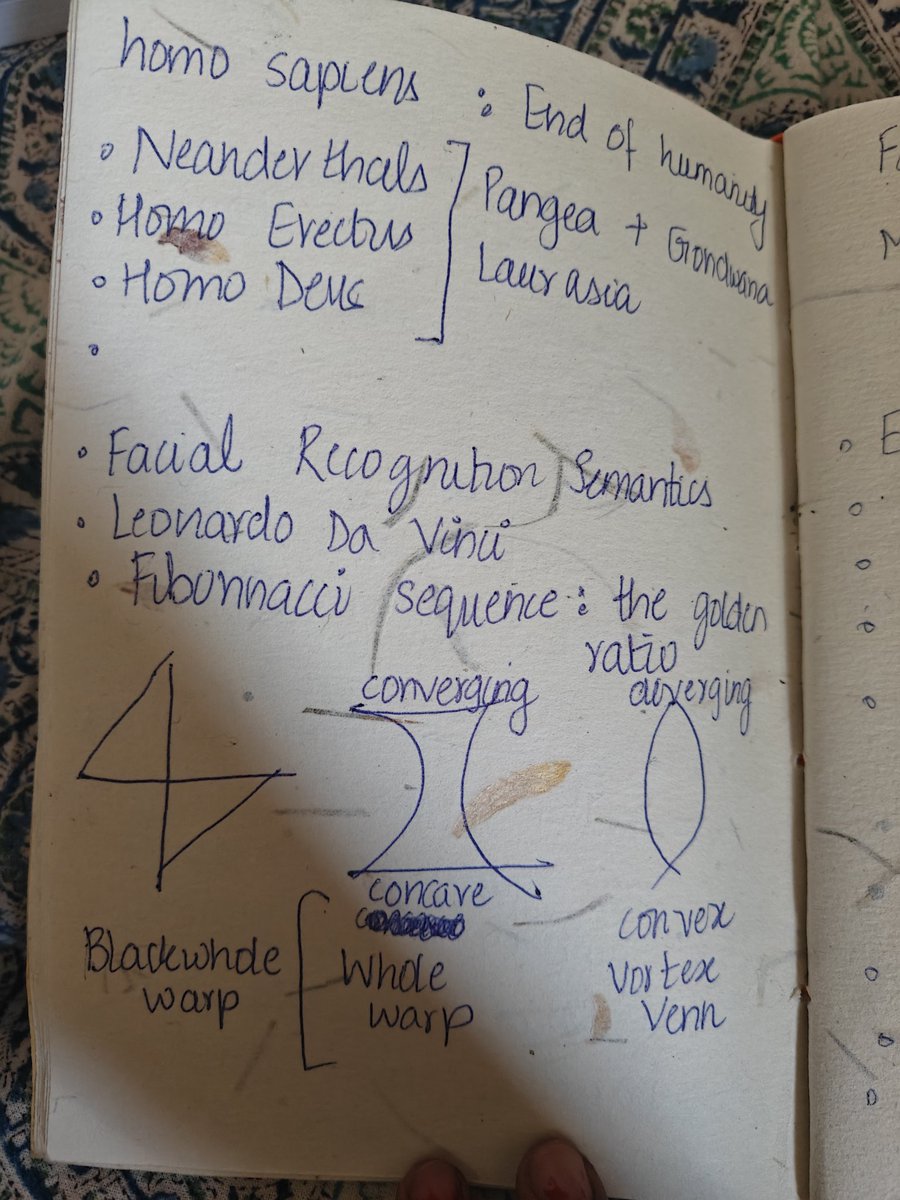 homo sapiens : End of humanity
• Neanderthals ] Pangea + Gondwana
• Homo Erectus Laurasia
• Homo Deus
•
• Facial Recognition Semantics
• Leonardo Da Vinci
• Fibonnacci sequence : the golden
ratio
converging
diverging
concave
convex
Blackwhole
warp
Whole
warp
vortex
Venn
F
M
• E